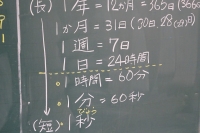 (長) 1年=12か月=365日(366
1か月=31日(30日、28(29)日)
1週=7日
1日=24時間
1時間=60分
1分=60秒
(短) 1秒
びょう